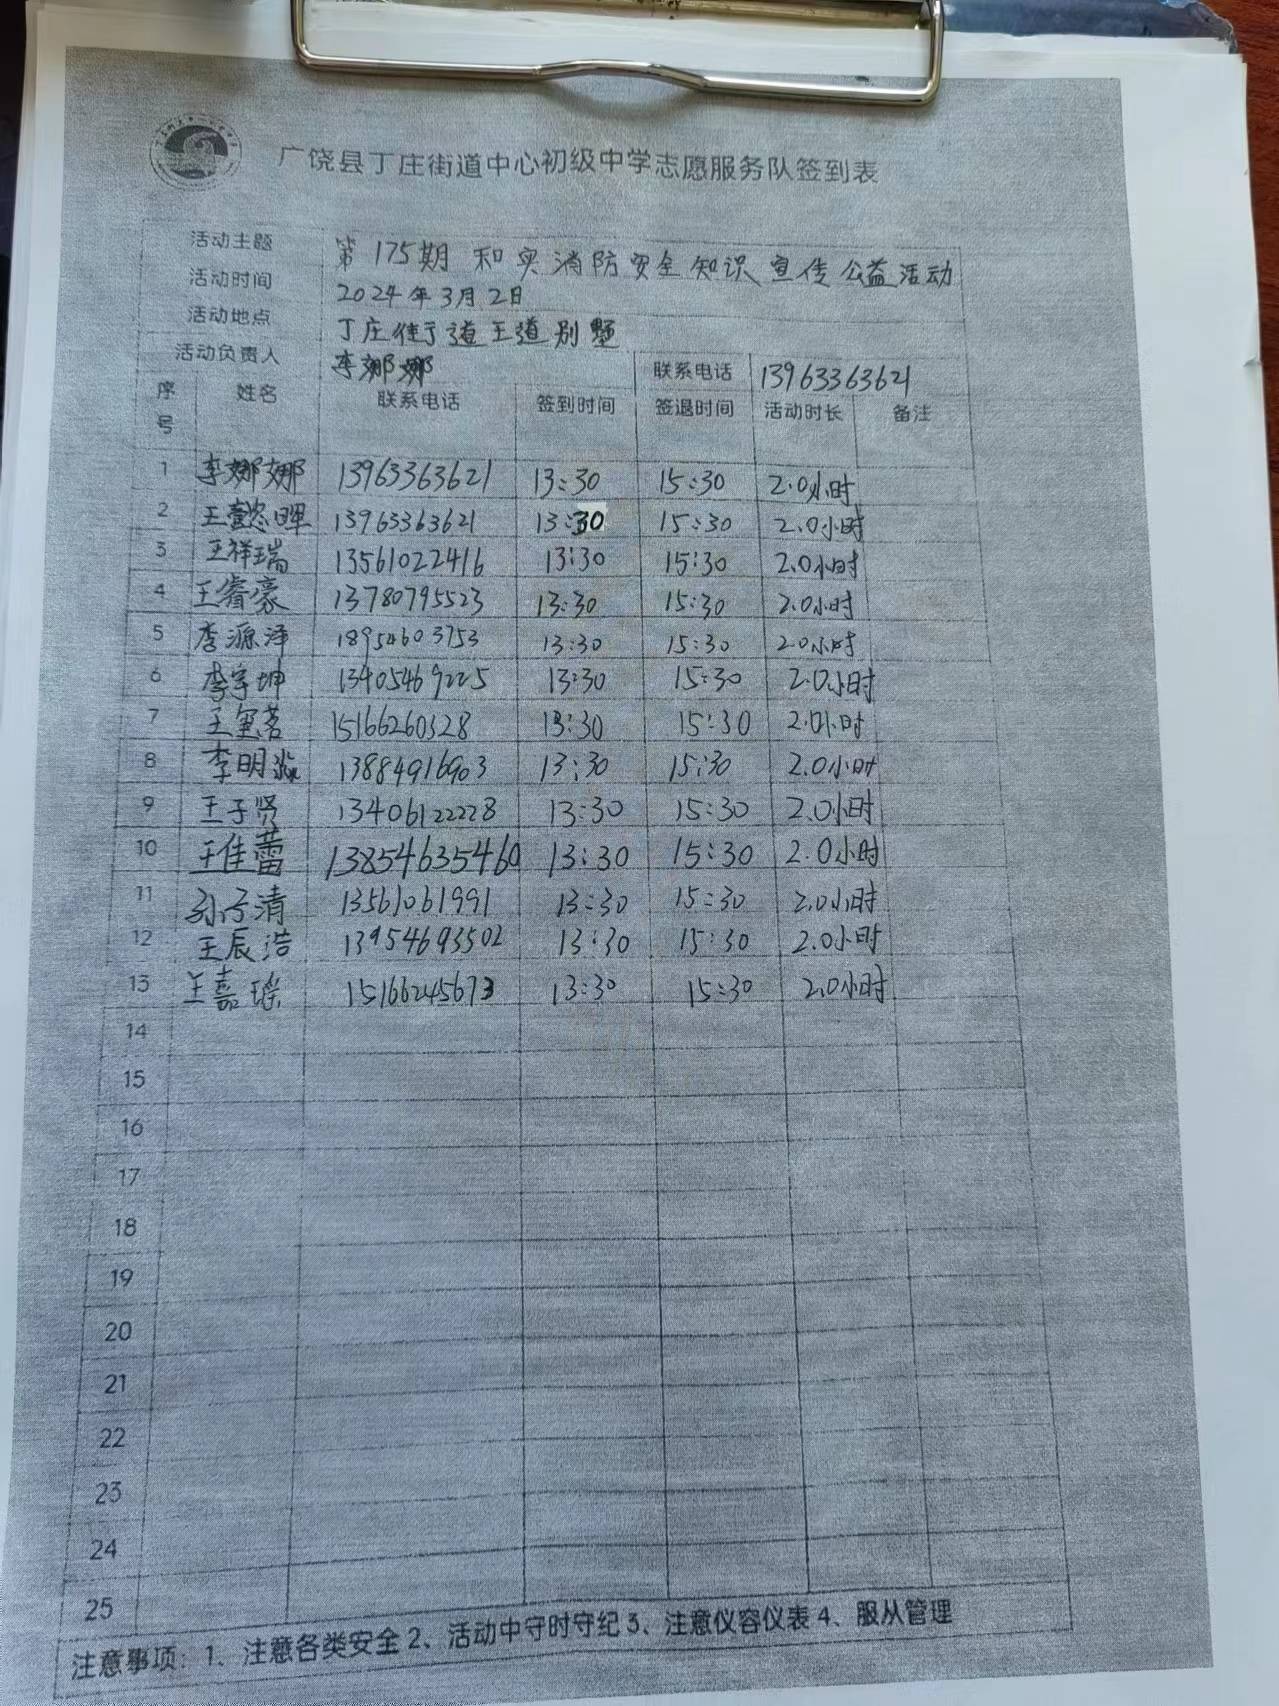 广饶县丁庄街道中心初级中学志愿服务队签到表
活动主题 第175期 和实消防安全知识宣传公益活动
活动时间 2024年3月2日
活动地点 丁庄街道王道别墅
活动负责人 李娜娜 联系电话 13963363621
序号 姓名 联系电话 签到时间 签退时间 活动时长 备注
1 李娜娜 13963363621 13:30 15:30 2.0小时
2 王懿晖 13963363621 13:30 15:30 2.0小时
3 王祥瑞 13561022416 13:30 15:30 2.0小时
4 王睿豪 13780795523 13:30 15:30 2.0小时
5 李源泽 18954603753 13:30 15:30 2.0小时
6 李宇坤 13405469225 13:30 15:30 2.0小时
7 15166260328 13:30 15:30 2.0小时
8 李明淼 13884916903 13:30 15:30 2.0小时
9 王子贤 13406122228 13:30 15:30 2.0小时
10 王佳蕾 13854635460 13:30 15:30 2.0小时
11 孙子清 13561061991 13:30 15:30 2.0小时
12 王辰浩 13954693502 13:30 15:30 2.0小时
13 王嘉瑶 15166245673 13:30 15:30 2.0小时
14
15
16
17
18
19
20
21
22
23
24
25
注意事项：1、注意各类安全 2、活动中守时守纪 3、注意仪容仪表 4、服从管理